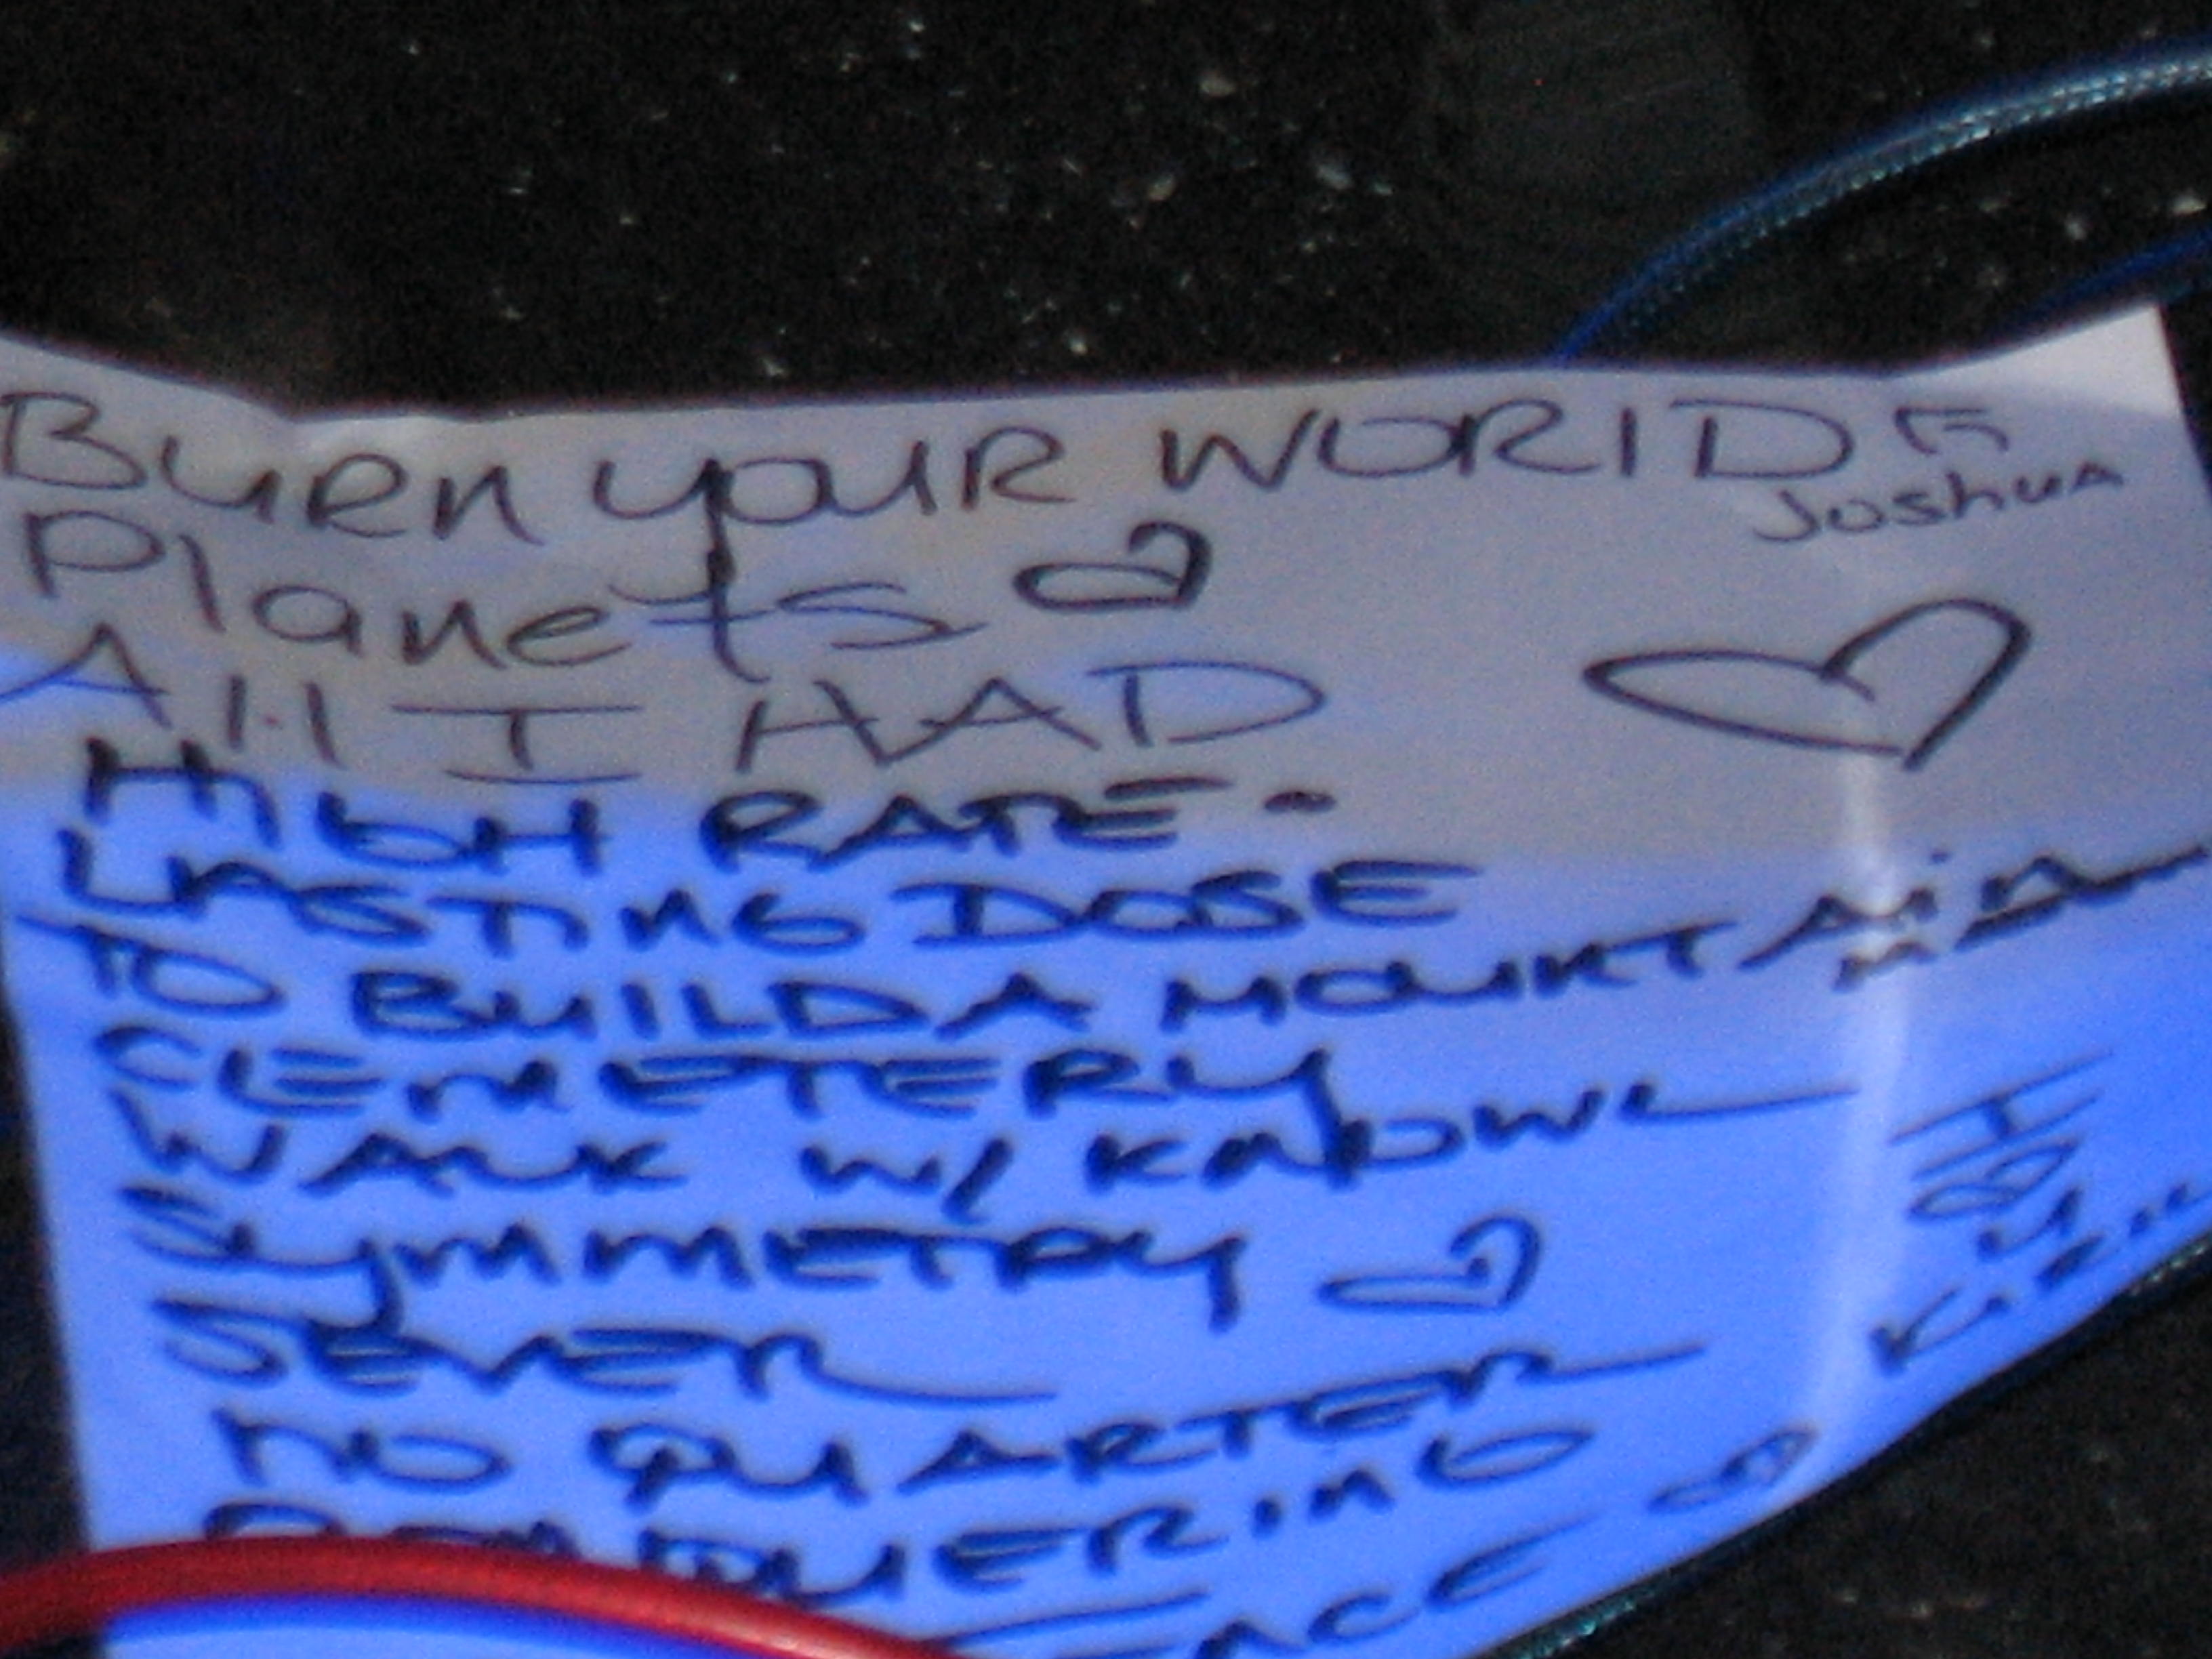 Burn your WORlD
Joshua
Planets
All I HAD
HIGH RATE-
LASTING DOSE
TO BUILD A MOUNTAIN
CEMETERY
WALK w/ KNOWL
SYMMETRY
SEVER
NO QUARTER